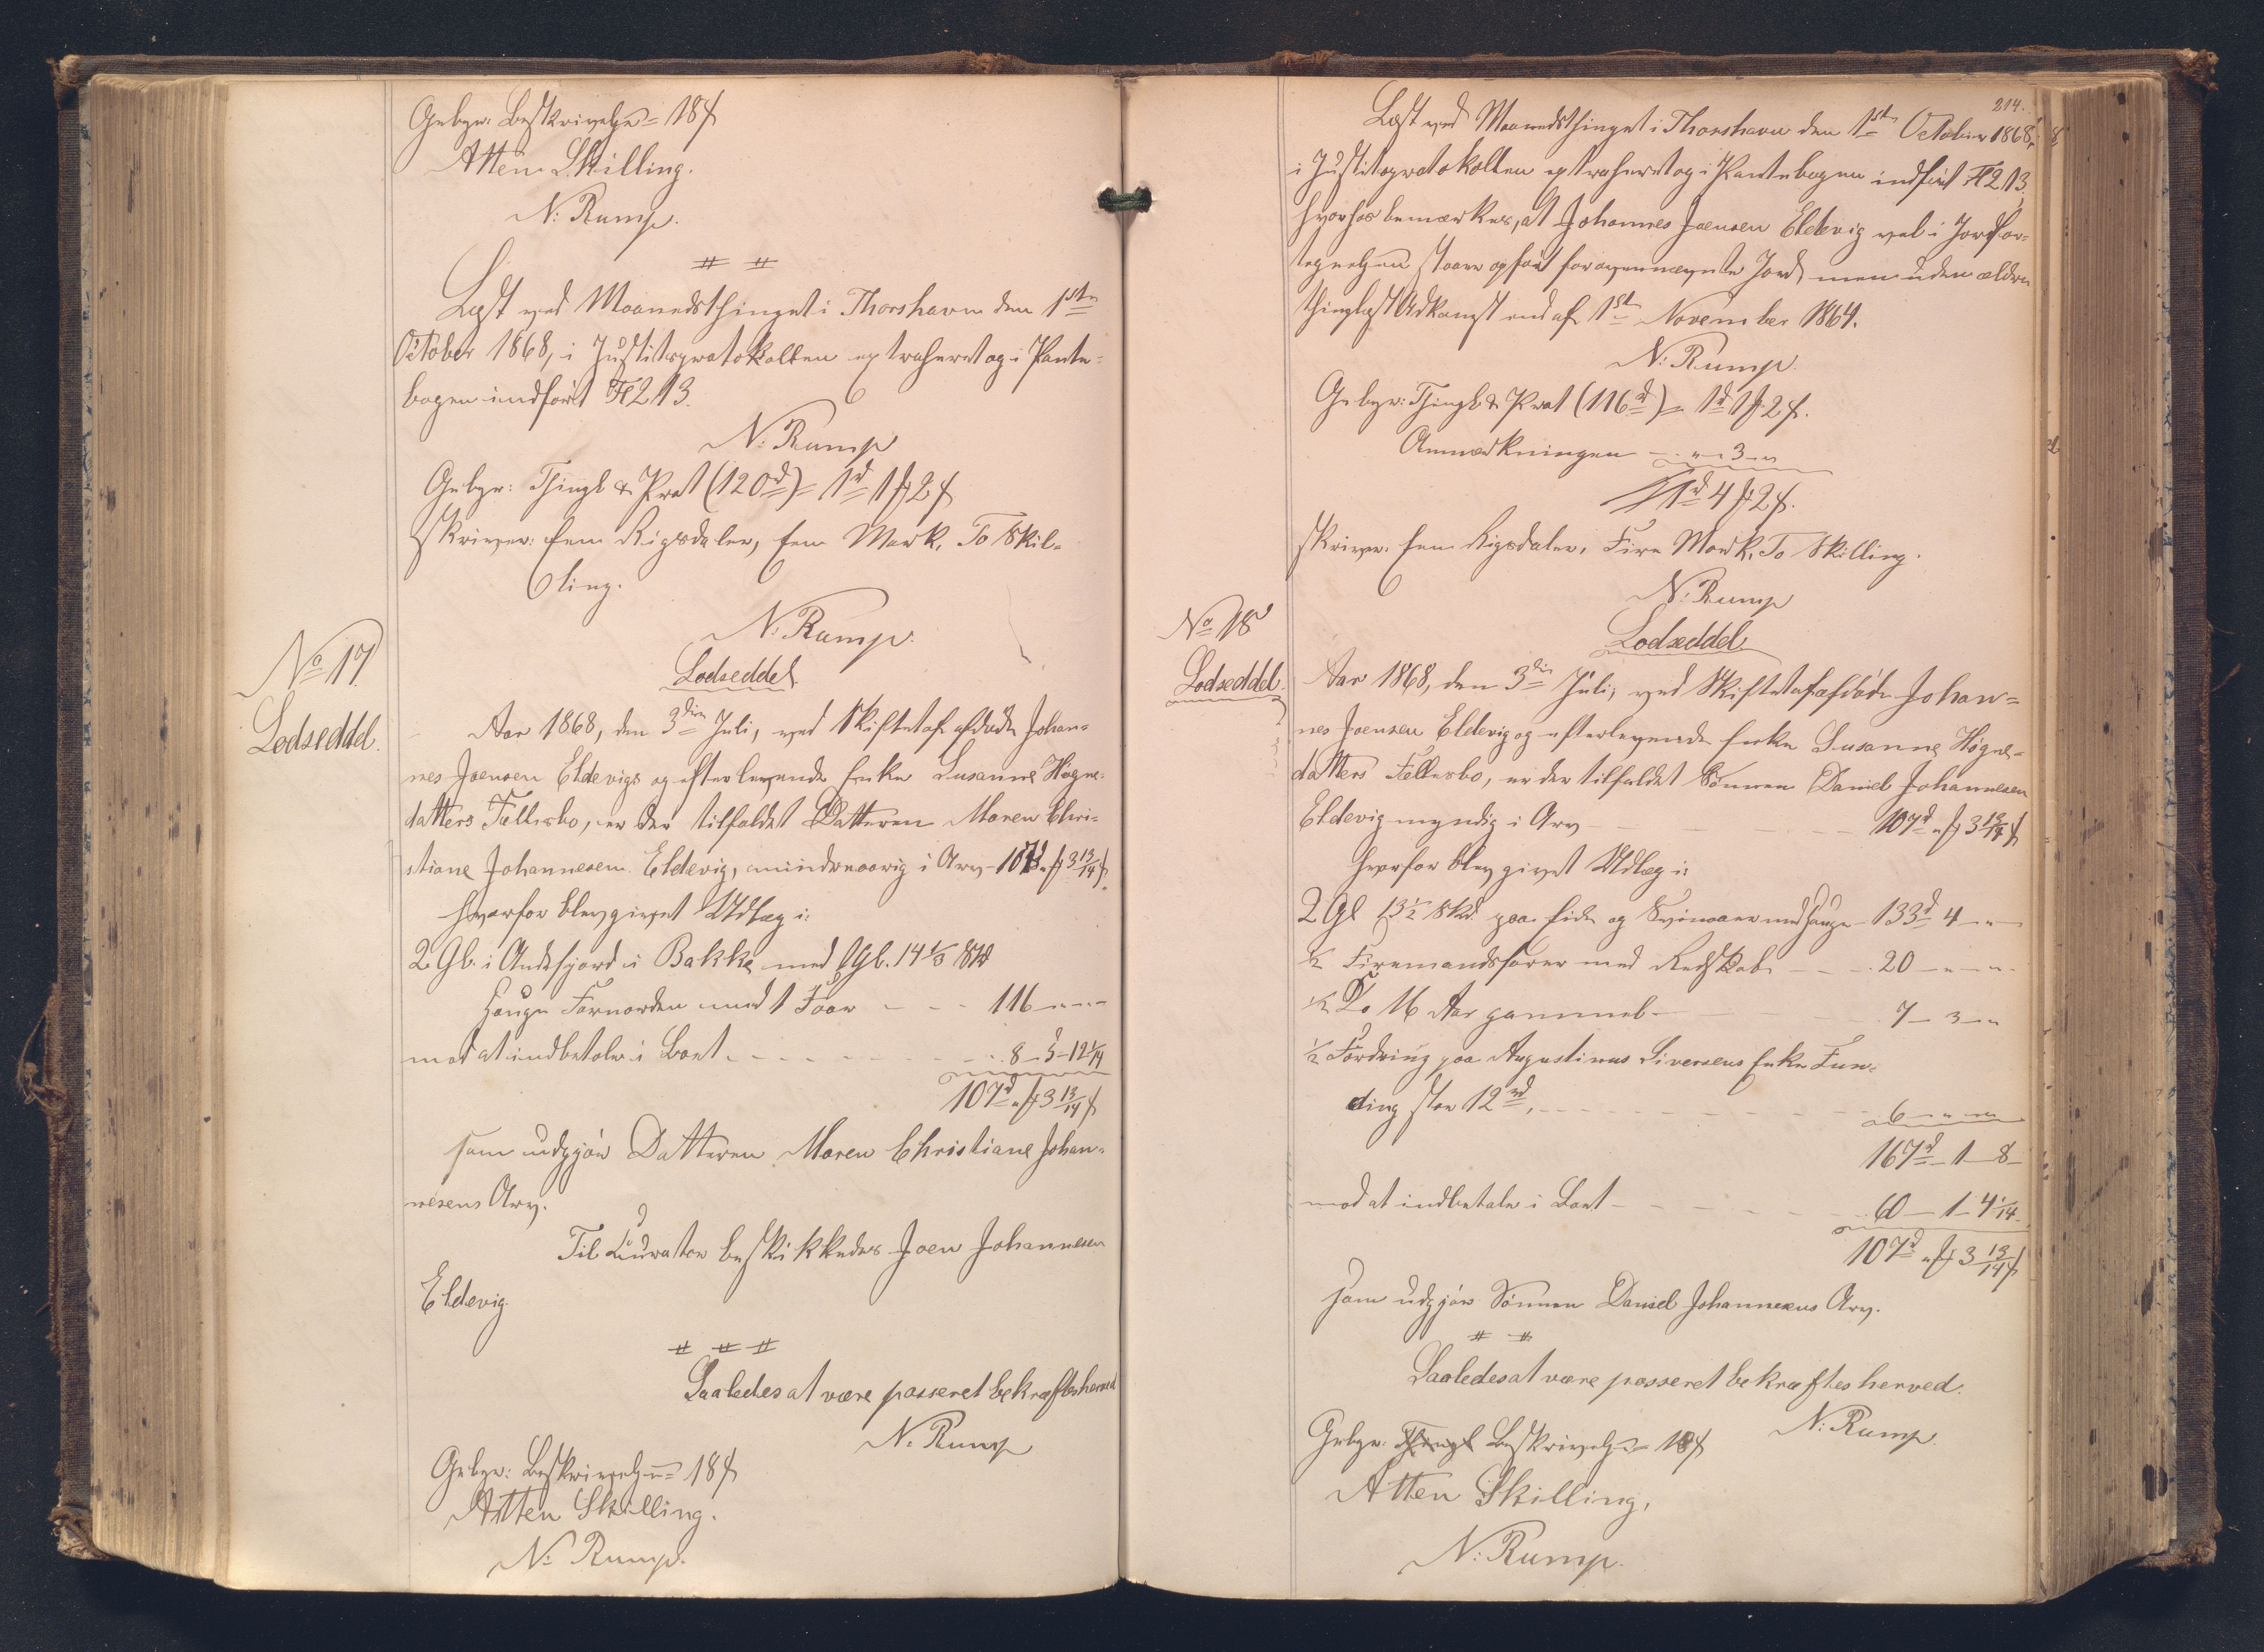 Gebyr: Beskrivelse = 18 ß
Atten Skilling.
N. Rump.
Læst ved Maanedsthinget i Thorshavn den 1ste
October 1868, i Justitsprotokollen extraheret og i Pante-
bogen indført Fol 213.
N. Rump
Gebyr: Thingl & Prot (120 rd) = 1 rd 1 mk 2 ß
skriver: een Rigsdaler, een Mark, To Skil-
ling.
N. Rump.
No 17
Lodseddel.
Lodseddel
Aar 1868, den 3die Juli, ved Skiftet af afdøde Johan-
nes Joensen Eldevigs og efterlevende Enke Susanne Høgne-
datters Fællesbo, er der tilfaldet Datteren Maren Chri-
stiane Johannesen Eldevig, mindreaarig i Arv - 107 rd " mk 3 13/14 ß
hvorfor blev givet Udlæg i:
2 Gl. i Andefjord i Bakke med 1 Gl. 14 1/3 Skd
Hauge Fornorden med 1 Foar - - - 116 - " - "
mod at indbetale i Boet - - - 8 - 5 - 12 1/14
107 rd " mk 3 13/14 ß
som udgjør Datteren Maren Christiane Johan-
nesens Arv.
Til Curator beskikkedes Joen Johannesen
Eldevig.
Saaledes at være passeret bekræftes herved
N. Rump
Gebyr: Beskrivelse = 18 ß
Atten Skilling.
N. Rump.
214.
Læst ved Maanedsthinget i Thorshavn den 1ste October 1868,
i Justitsprotokollen extraheret og i Pantebogen indført Fol 213,
hvorhos bemærkes, at Johannes Joensen Eldevig vel i Jordfor-
tegnelsen staaer opført for ovennævnte Jord, men uden ældre
thinglæst Adkomst end af 1ste November 1864.
N. Rump.
Gebyr: Thingl & Prot (116 rd) = 1 rd 1 mk 2 ß.
Anmærkningen - " - 3 - "
1 rd 4 mk 2 ß.
skriver: een Rigsdaler, Fire Mark, To Skilling.
N. Rump
No 18
Lodseddel.
Lodseddel.
Aar 1868, den 3die Juli, ved Skiftet af afdøde Johan-
nes Joensen Eldevig og efterlevende Enke Susanne Høgne-
datters Fællesbo, er der tilfaldet Sønnen Daniel Johannesen
Eldevig myndig i Arv - - - 107 rd " mk 3 13/14 ß
hvorfor blev givet Udlæg i:
2 Gl 13 1/2 Skd. paa Eide og Svinaaer med Hauge - 133 rd 4 - "
1/2 Firemandsfarer med Redskab - - - 20 - " - "
1/2 Do 16 Aar gammel - - - 7 - 3 - "
1/2 Fordring paa Augustinus Siversens Enke Fun-
ding stor 12 rd, - - - 6 - " - "
167 rd - 1 - 8 -
mod at indbetale i Boet - - - 60 - 1 - 4 1/14
107 rd " mk 3 13/14 ß
som udgjør Sønnen Daniel Johannesens Arv.
Saaledes at være passeret bekræftes herved.
N. Rump.
Gebyr: Thingl Beskrivelse = 18 ß
Atten Skilling,
N. Rump.